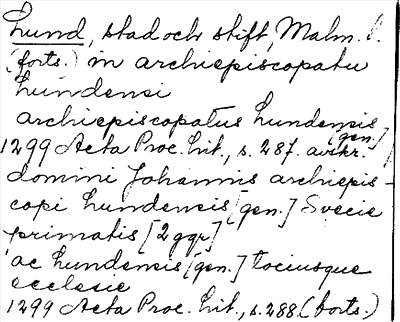 Lund, stad och stift, Malm. l.
(forts.) in archiepiscopatu
Lundensi
archiepiscopatus Lundensis [gen.]
1299 Acta Proc. Lit., s. 287. avskr.
domini Johannis archiepis-
copi Lundensis [gen.] Svecie
primatis [2 ggr]
ac Lundensis [gen.] tociusque
ecclesie
1299 Acta Proc. Lit., s. 288. (forts.)